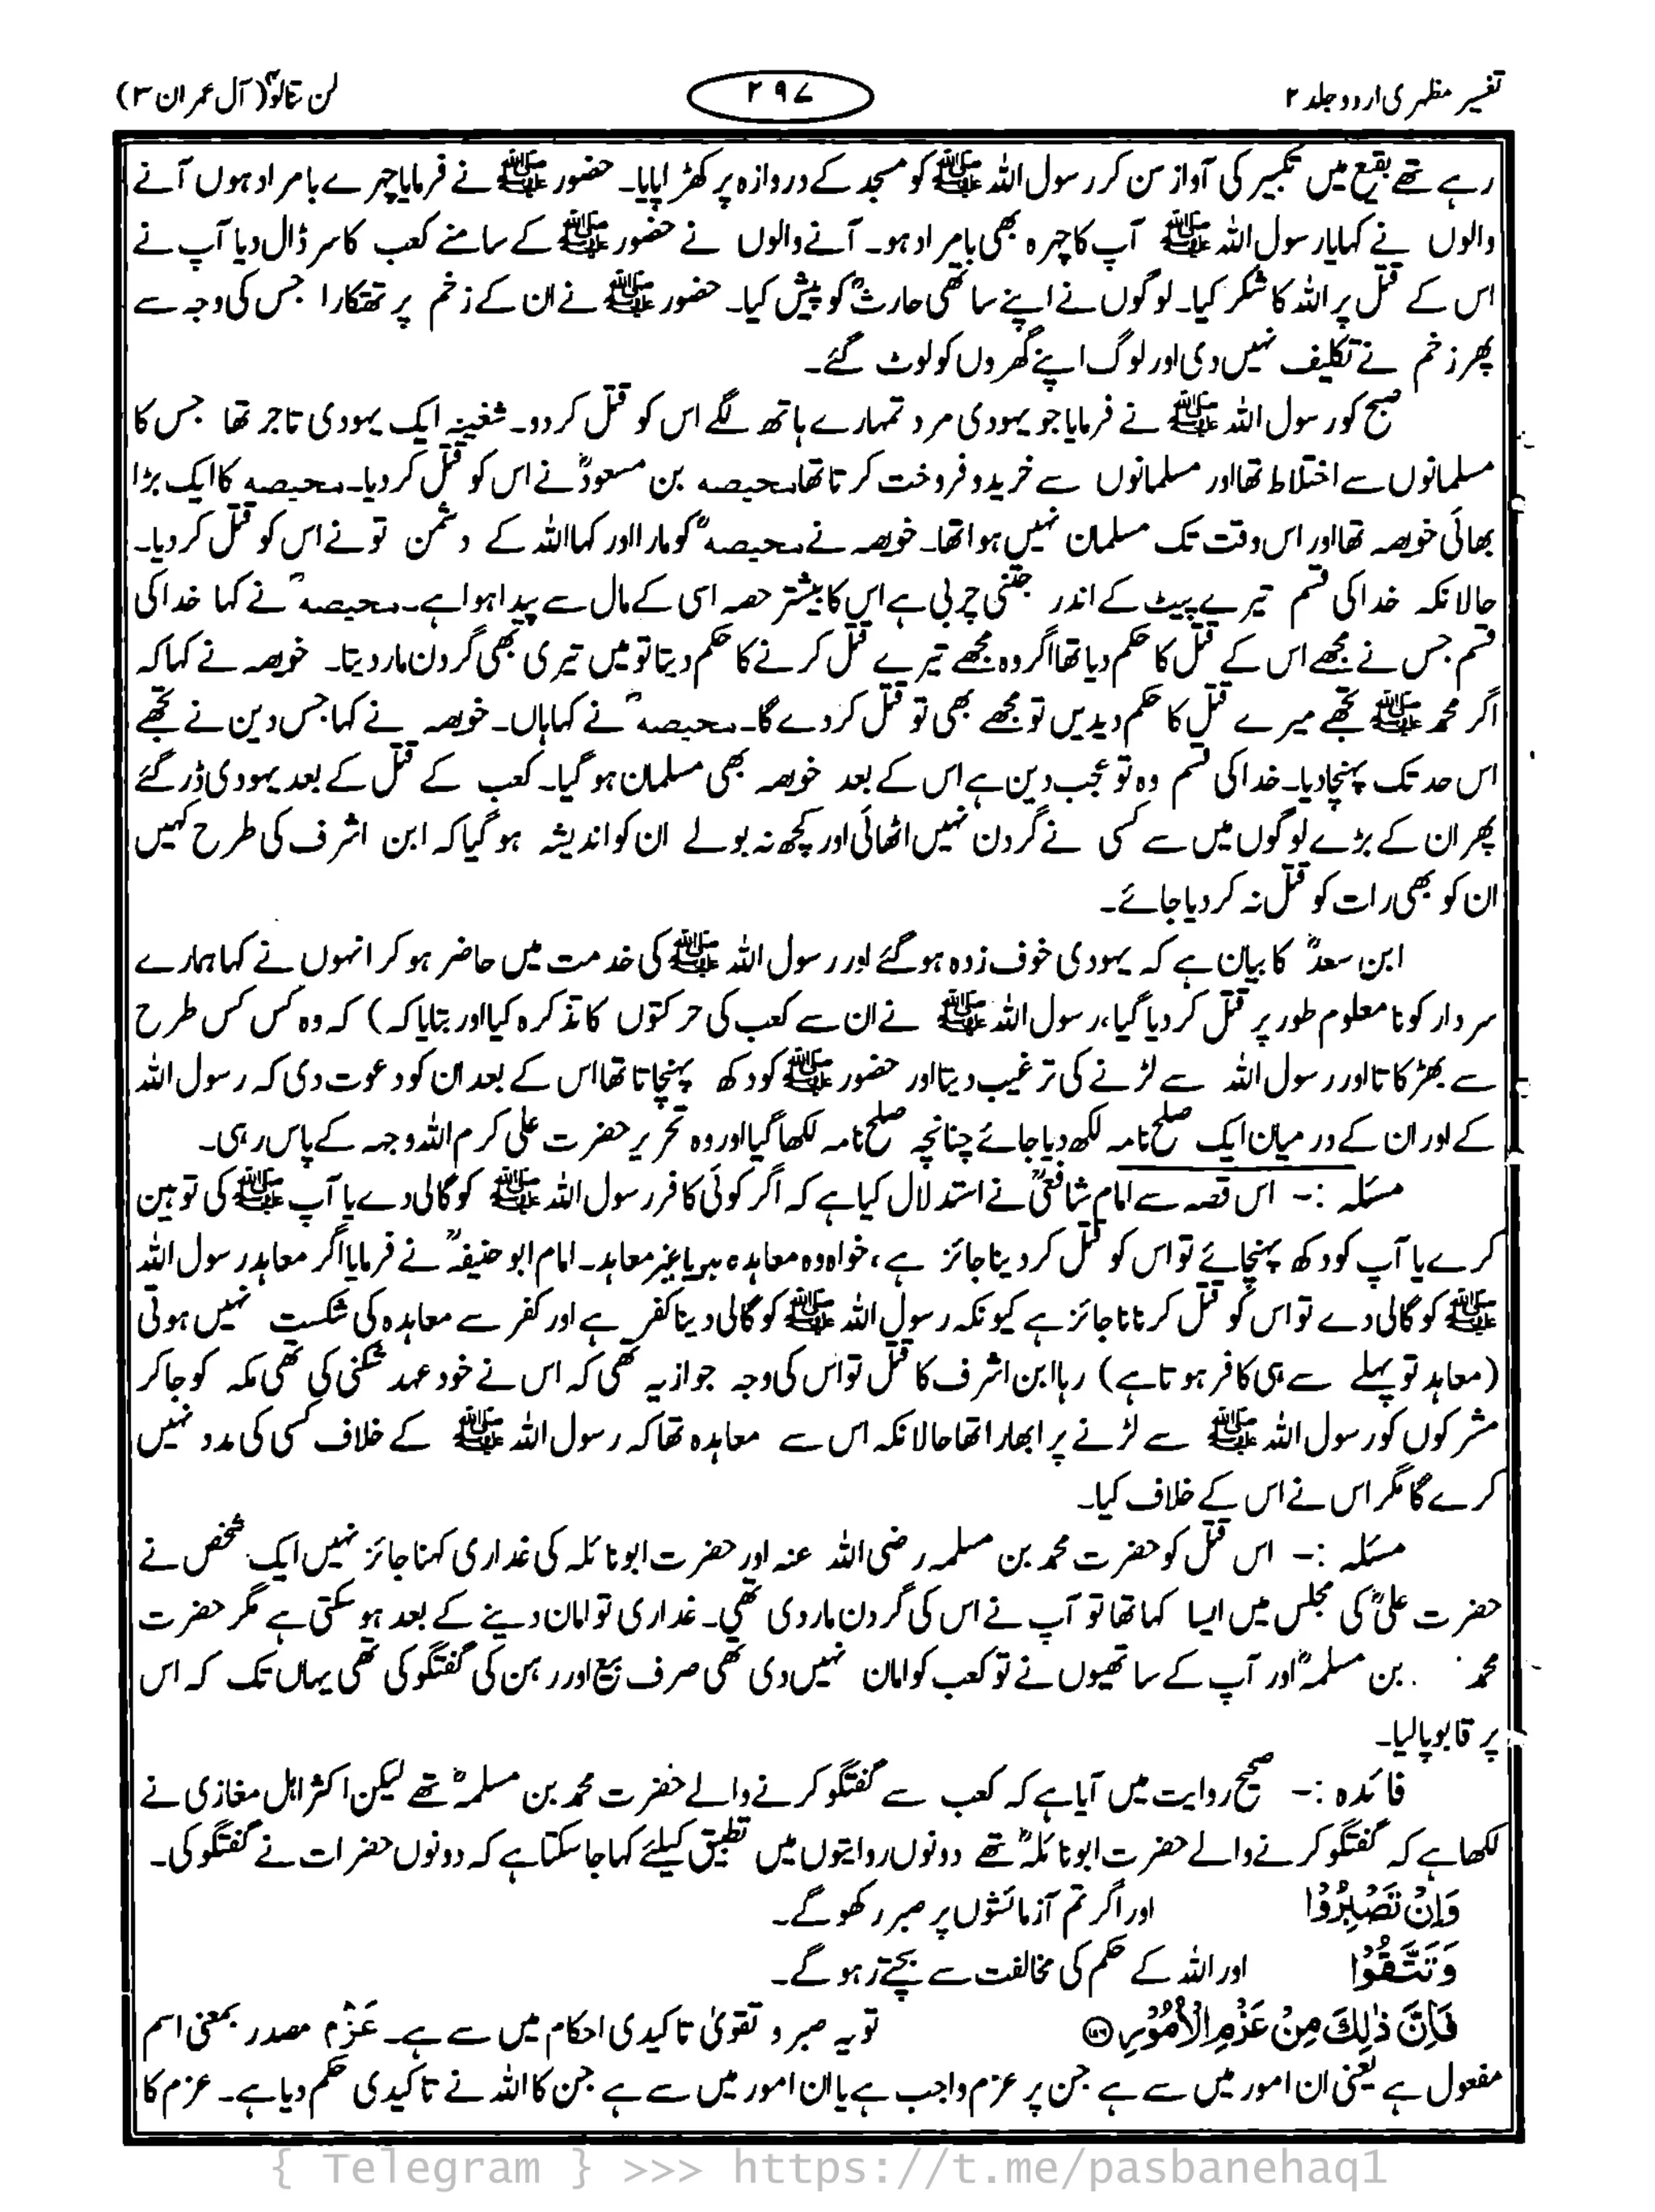 تفسیر مظہری اردو جلد ۲
۲۹۷
لن تنالوا (آل عمران ۳)
رہے تھے بقیع میں تکبیر کی آواز سن کر رسول اللہ ﷺ کو مسجد کے دروازہ پر کھڑا پایا۔ حضور ﷺ نے فرمایا چہرے بامراد ہوں آنے
والوں نے کہا یا رسول اللہ ﷺ آپ کا چہرہ بھی بامراد ہو۔ آنے والوں نے حضور ﷺ کے سامنے کعب کا سر ڈال دیا آپ نے
اس کے قتل پر اللہ کا شکر کیا۔ لوگوں نے اپنے ساتھی حارثؓ کو پیش کیا۔ حضور ﷺ نے ان کے زخم پر تھتکارا جس کی وجہ سے
پھر زخم نے تکلیف نہیں دی اور لوگ اپنے گھروں کو لوٹ گئے۔
صبح کو رسول اللہ ﷺ نے فرمایا جو یہودی مرد تمہارے ہاتھ لگے اس کو قتل کر دو۔ شغینہ ایک یہودی تاجر تھا جس کا
مسلمانوں سے اختلاط تھا اور مسلمانوں سے خرید و فروخت کرتا تھا محیصہ بن مسعودؓ نے اس کو قتل کر دیا۔ محیصہ کا ایک بڑا
بھائی خویصہ تھا اور اس وقت تک مسلمان نہیں ہوا تھا۔ خویصہ نے محیصہؓ کو مارا اور کہا اللہ کے دشمن تو نے اس کو قتل کر دیا۔
حالانکہ خدا کی قسم تیرے پیٹ کے اندر جتنی چربی ہے اس کا بیشتر حصہ اسی کے مال سے پیدا ہوا ہے۔ محیصہؓ نے کہا خدا کی
قسم جس نے مجھے اس کے قتل کا حکم دیا تھا اگر وہ مجھے تیرے قتل کرنے کا حکم دیتا تو میں تیری بھی گردن مار دیتا۔ خویصہ نے کہا کہ
اگر محمد ﷺ تجھے میرے قتل کا حکم دیدیں تو مجھے بھی تو قتل کر دے گا۔ محیصہؓ نے کہا ہاں۔ خویصہ نے کہا جس دین نے تجھے
اس حد تک پہنچا دیا۔ خدا کی قسم وہ تو عجب دین ہے اس کے بعد خویصہ بھی مسلمان ہو گیا۔ کعب کے قتل کے بعد یہودی ڈر گئے
پھر ان کے بڑے لوگوں میں سے کسی نے گردن نہیں اٹھائی اور کچھ نہ بولے ان کو اندیشہ ہو گیا کہ ابن اشرف کی طرح کہیں
ان کو بھی رات کو قتل نہ کر دیا جائے۔
ابن سعدؒ کا بیان ہے کہ یہودی خوف زدہ ہو گئے اور رسول اللہ ﷺ کی خدمت میں حاضر ہو کر انہوں نے کہا ہمارے
سردار کو نامعلوم طور پر قتل کر دیا گیا، رسول اللہ ﷺ نے ان سے کعب کی حرکتوں کا تذکرہ کیا اور بتایا کہ) کہ وہ کس کس طرح
سے بھڑکاتا اور رسول اللہ سے لڑنے کی ترغیب دیتا اور حضور ﷺ کو دکھ پہنچاتا تھا اس کے بعد ان کو دعوت دی کہ رسول اللہ
کے اور ان کے درمیان ایک صلح نامہ لکھ دیا جائے چنانچہ صلح نامہ لکھا گیا اور وہ تحریر حضرت علی کرم اللہ وجہہ کے پاس رہی۔
مسئلہ :- اس قصہ سے امام شافعیؒ نے استدلال کیا ہے کہ اگر کوئی کافر رسول اللہ ﷺ کو گالی دے یا آپ ﷺ کی توہین
کرے یا آپ کو دکھ پہنچائے تو اس کو قتل کر دینا جائز ہے، خواہ وہ معاہدہ ہو یا غیر معاہد۔ امام ابو حنیفہؒ نے فرمایا اگر معاہد رسول اللہ
ﷺ کو گالی دے تو اس کو قتل کرنا ناجائز ہے کیونکہ رسول اللہ ﷺ کو گالی دینا کفر ہے اور کفر سے معاہدہ کی شکست نہیں ہوتی
(معاہد تو پہلے سے ہی کافر ہوتا ہے) رہا ابن اشرف کا قتل تو اس کی وجہ جواز یہ تھی کہ اس نے خود عہد شکنی کی تھی مکہ کو جا کر
مشرکوں کو رسول اللہ ﷺ سے لڑنے پر ابھارا تھا حالانکہ اس سے معاہدہ تھا کہ رسول اللہ ﷺ کے خلاف کسی کی مدد نہیں
کرے گا مگر اس نے اس کے خلاف کیا۔
مسئلہ :- اس قتل کو حضرت محمد بن مسلمہ رضی اللہ عنہ اور حضرت ابو نائلہ کی غداری کہنا جائز نہیں ایک شخص نے
حضرت علیؓ کی مجلس میں ایسا کہا تھا تو آپ نے اس کی گردن مار دی تھی۔ غداری تو امان دینے کے بعد ہو سکتی ہے مگر حضرت
محمد بن مسلمہؓ اور آپ کے ساتھیوں نے تو کعب کو امان نہیں دی تھی صرف بیع اور رہن کی گفتگو کی تھی یہاں تک کہ اس
پر قابو پالیا۔
فائدہ :- صحیح روایت میں آیا ہے کہ کعب سے گفتگو کرنے والے حضرت محمد بن مسلمہؓ تھے لیکن اکثر اہل مغازی نے
لکھا ہے کہ گفتگو کرنے والے حضرت ابو نائلہؓ تھے دونوں روایتوں میں تطبیق کیلئے کہا جا سکتا ہے کہ دونوں حضرات نے گفتگو کی۔
وَإِنْ تَصْبِرُوْا اور اگر تم آزمائشوں پر صبر رکھو گے۔
وَتَتَّقُوْا اور اللہ کے حکم کی مخالفت سے بچتے رہو گے۔
فَإِنَّ ذٰلِكَ مِنْ عَزْمِ الْأُمُوْرِ ﴿۱۸۶﴾ تو یہ صبر و تقویٰ تاکیدی احکام میں سے ہے۔ عَزْم مصدر بمعنی اسم
مفعول ہے یعنی ان امور میں سے ہے جن پر عزم واجب ہے یا ان امور میں سے ہے جن کا اللہ نے تاکیدی حکم دیا ہے۔ عزم کا
{ Telegram } >>> https://t.me/pasbanehaq1